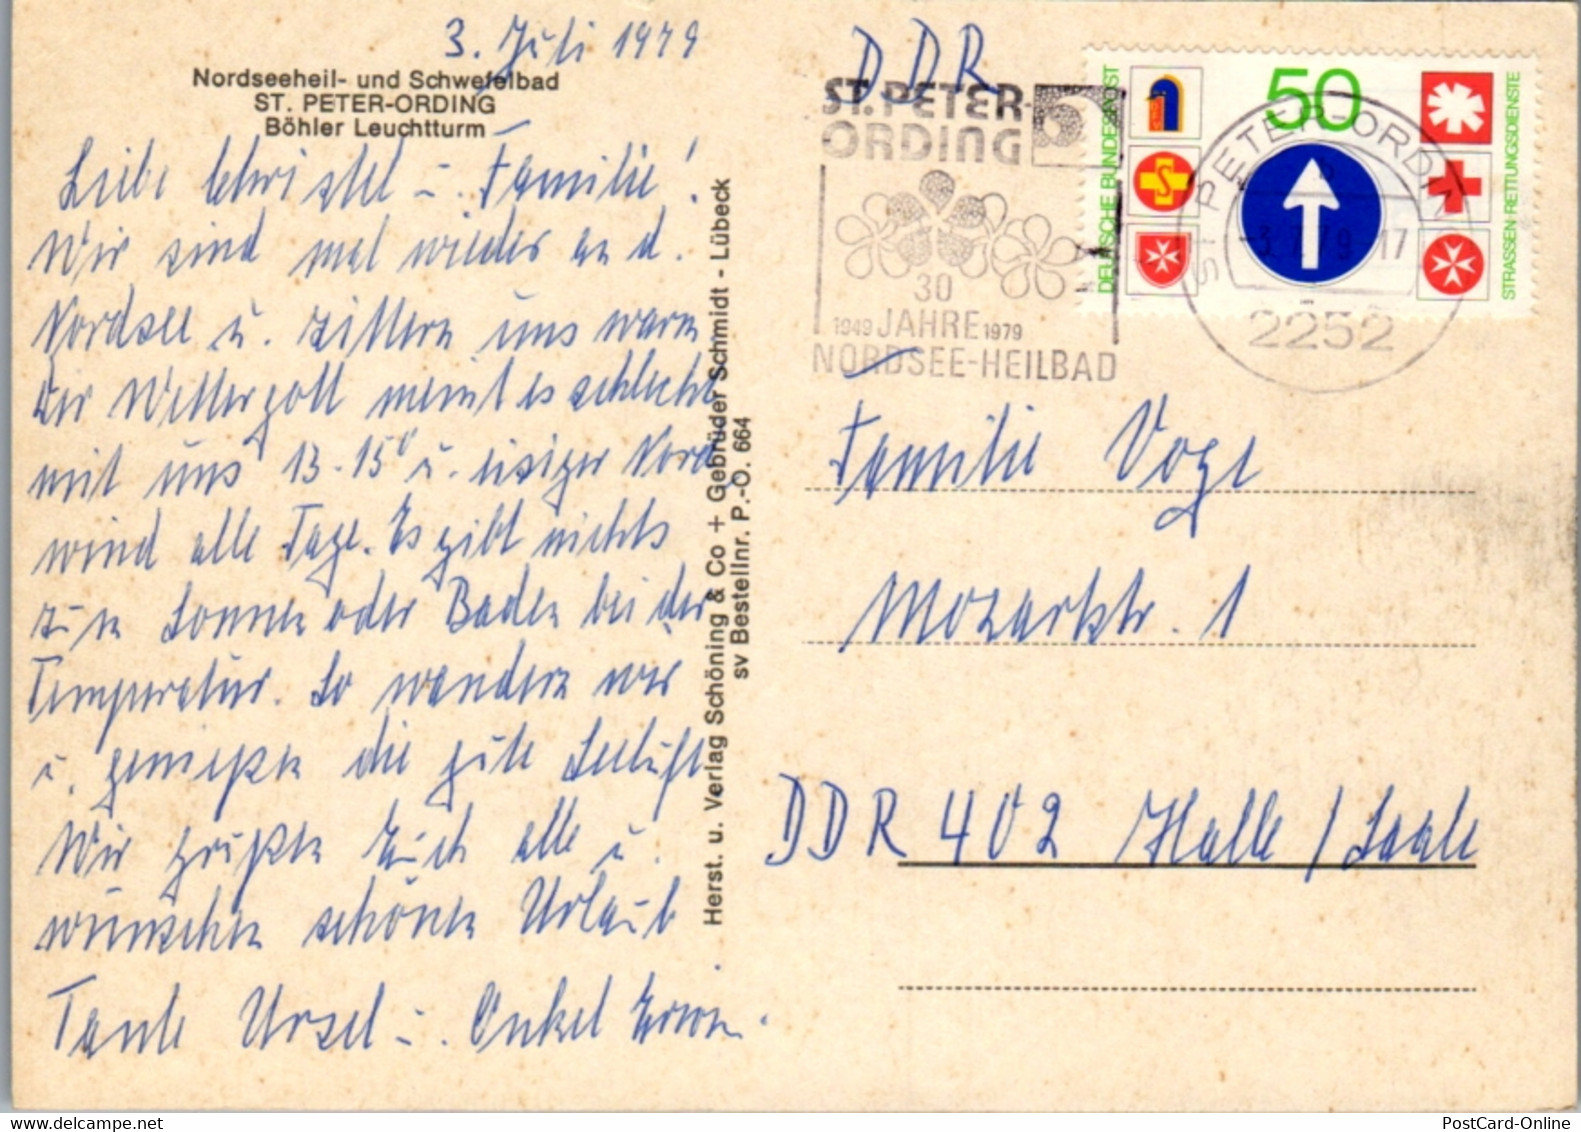 3. Juli 1979
Nordseeheil- und Schwefelbad
ST. PETER-ORDING
Böhler Leuchtturm
Liebe Christel u. Familie!
Wir sind mal wieder an d.
Nordsee u. zittern uns warm
Der Wettergott meint es schlecht
mit uns 13-15° u. eisiger Nord
wind alle Tage. Es gibt nichts
zum Sonnen oder Baden bei der
Temperatur. So wandern wir
u. genießen die gute Seeluft
Wir grüßen Euch alle u.
wünschen schönen Urlaub
Tante Ursel u. Onkel Erwin.
Herst. u. Verlag Schöning & Co + Gebrüder Schmidt - Lübeck
sv Bestellnr. P.-O. 664
DDR
ST. PETER-
ORDING
30
1949 JAHRE 1979
NORDSEE-HEILBAD
DEUTSCHE BUNDESPOST
50
STRASSEN-RETTUNGSDIENSTE
ST. PETER-ORDING
-3.7.79-17
2252
Familie Voge
Mozartstr. 1
DDR 402 Halle/Saale
PostCard-Online